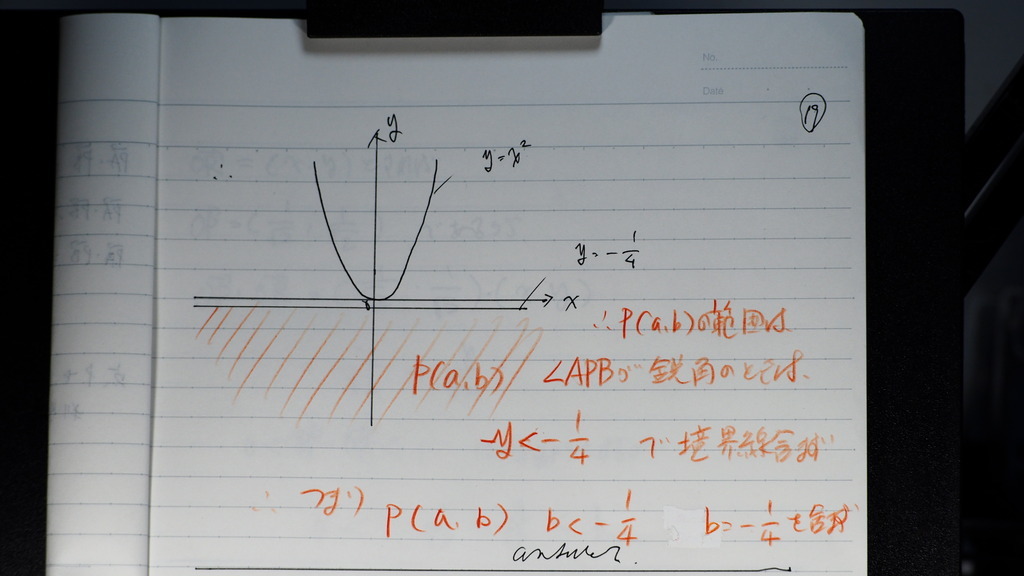 No.
Date
19
y
y=x²
∴
y=-1/4
0
x
∴P(a,b)の範囲は
P(a,b) ∠APBが鋭角のときは、
y<-1/4 で境界線含まず
∴ つまり P(a,b) b<-1/4 b=-1/4を含まず
answer.